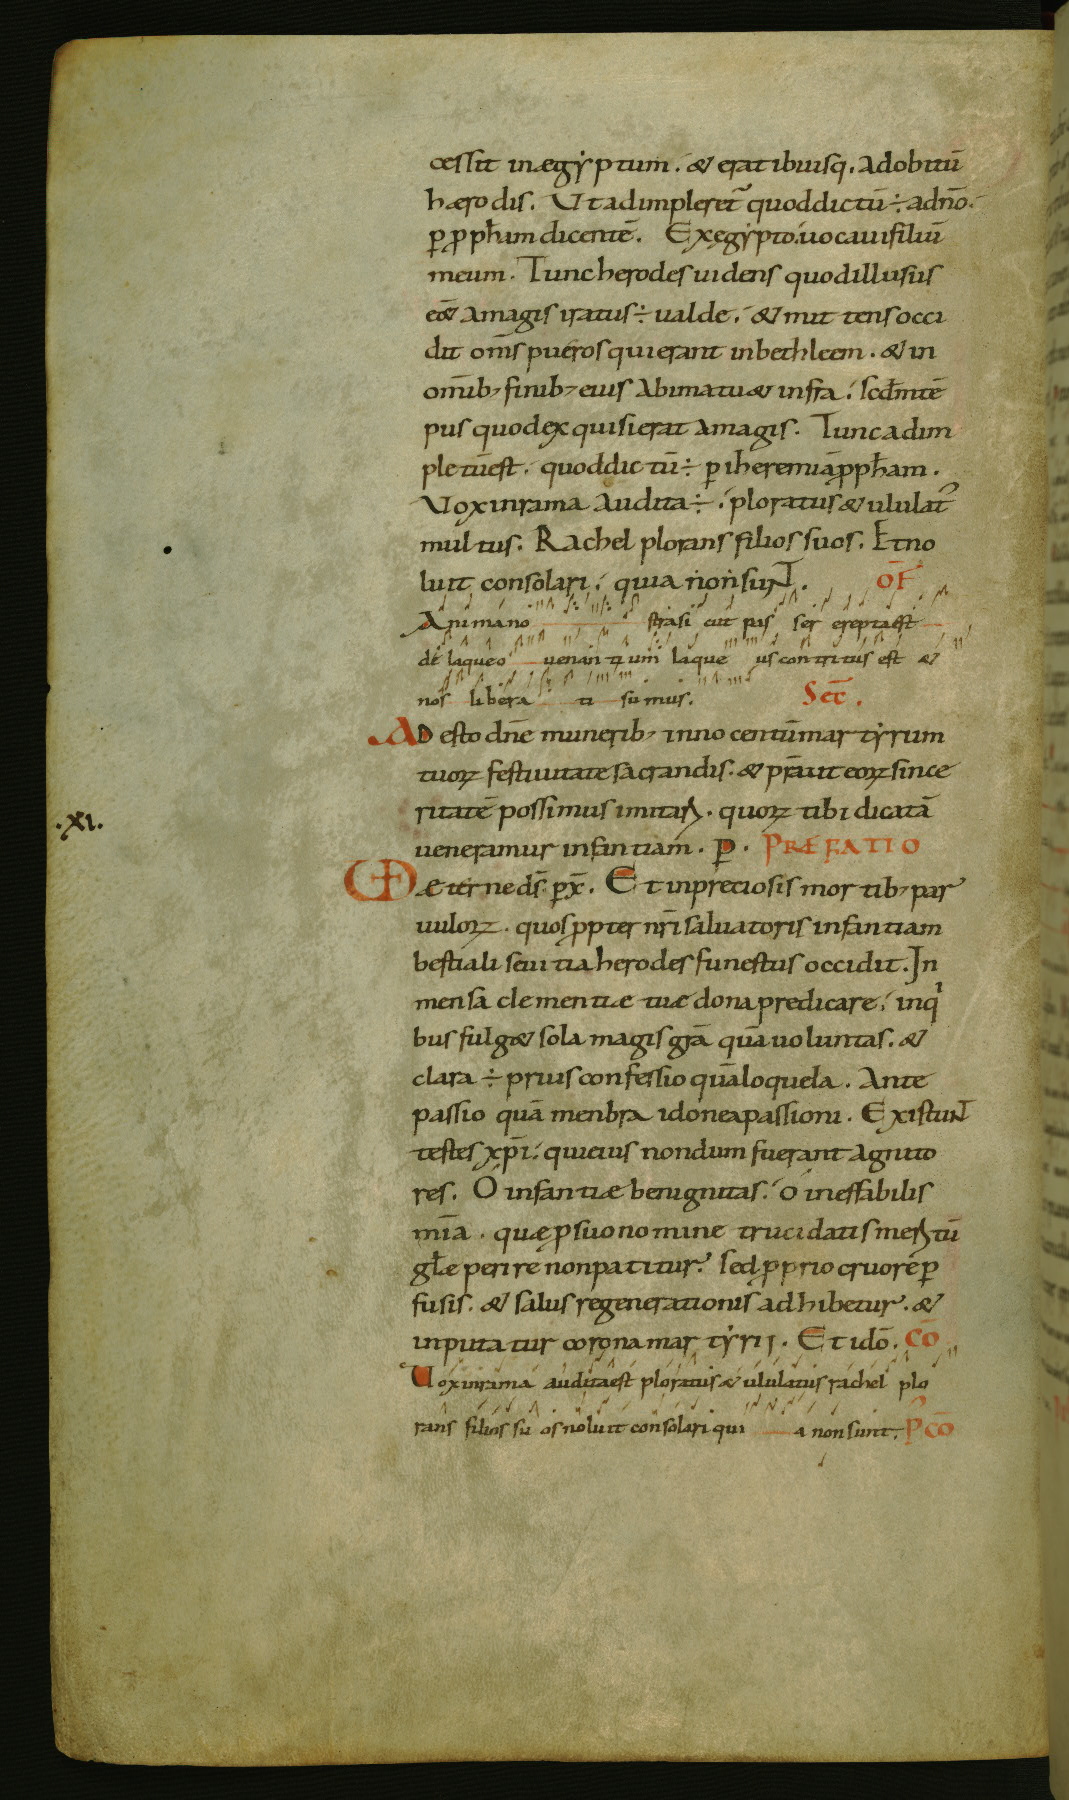 cessit in ægẏptum . & erat ibi usq. ad obitū
hærodis. Ut adimpleret̄ quod dictū ÷ a dn̄o.
ꝑ ꝓph̄am dicentē. Ex ęgẏpto uocaui filiū
meum . Tunc herodes uidens quod illusus
ee̅& a magis iratus ÷ ualde . & mittens occi
dit om̄s pueros qui erant in bethleem . & in
om̄ib; finib; eius a bimatu & infra . scd̄m tē
pus quod exquisierat a magis . Tunc adim
pletū est . quod dictū ÷ ꝑ iheremiā ꝓph̄am .
Uox in rama audita ÷ . ploratus & ululat᾽
multus . Rachel plorans filios suos . Et no
luit consolari . quia non sunt . OF̄
Anima n̄o stra sicut pas ser erepta est
de laqueo uenantium laque us contritus est &
nos libera ti sumus. Sec̄.
Ad esto dn̄e munerib; innocentū martẏrum
tuoꝝ festiuitate sacrandis . & prāuit eoꝝ since
ritatē possimus imitari . quoꝝ tibi dicatā
.XI.
ueneramur infantiam . ꝑ . PRÆFATIO
UD æterne ds̄ . ꝑ x̄ . Et in preciosis mortib; par
uuloꝝ . quos ꝓpter nr̄i saluatoris infantiam
bestiali seuitia herodes funestus occidit . In
mensa clementiæ tuæ dona predicare . in qⁱ
bus fulg& sola magis gr̄a quā uoluntas . &
clara ÷ prius confessio quā loquela . Ante
passio quā menbra idonea passioni . Existunt
testes xp̄i . qui eius nondum fuerant agnito
res . O infantiæ benignitas . o ineffabilis
mīa . quæ ꝑ suo nomine trucidatis meritū
gl̄æ perire non patitur . sed ꝓprio cruore ꝑ
fusis . & salus regenerationis adhibetur . &
inputatur corona martẏrii . Et idō . CŌ
Uox in rama audita est ploratus & ululatus rachel plo
rans filios su os noluit consolari qui a non sunt . P̄ CŌ